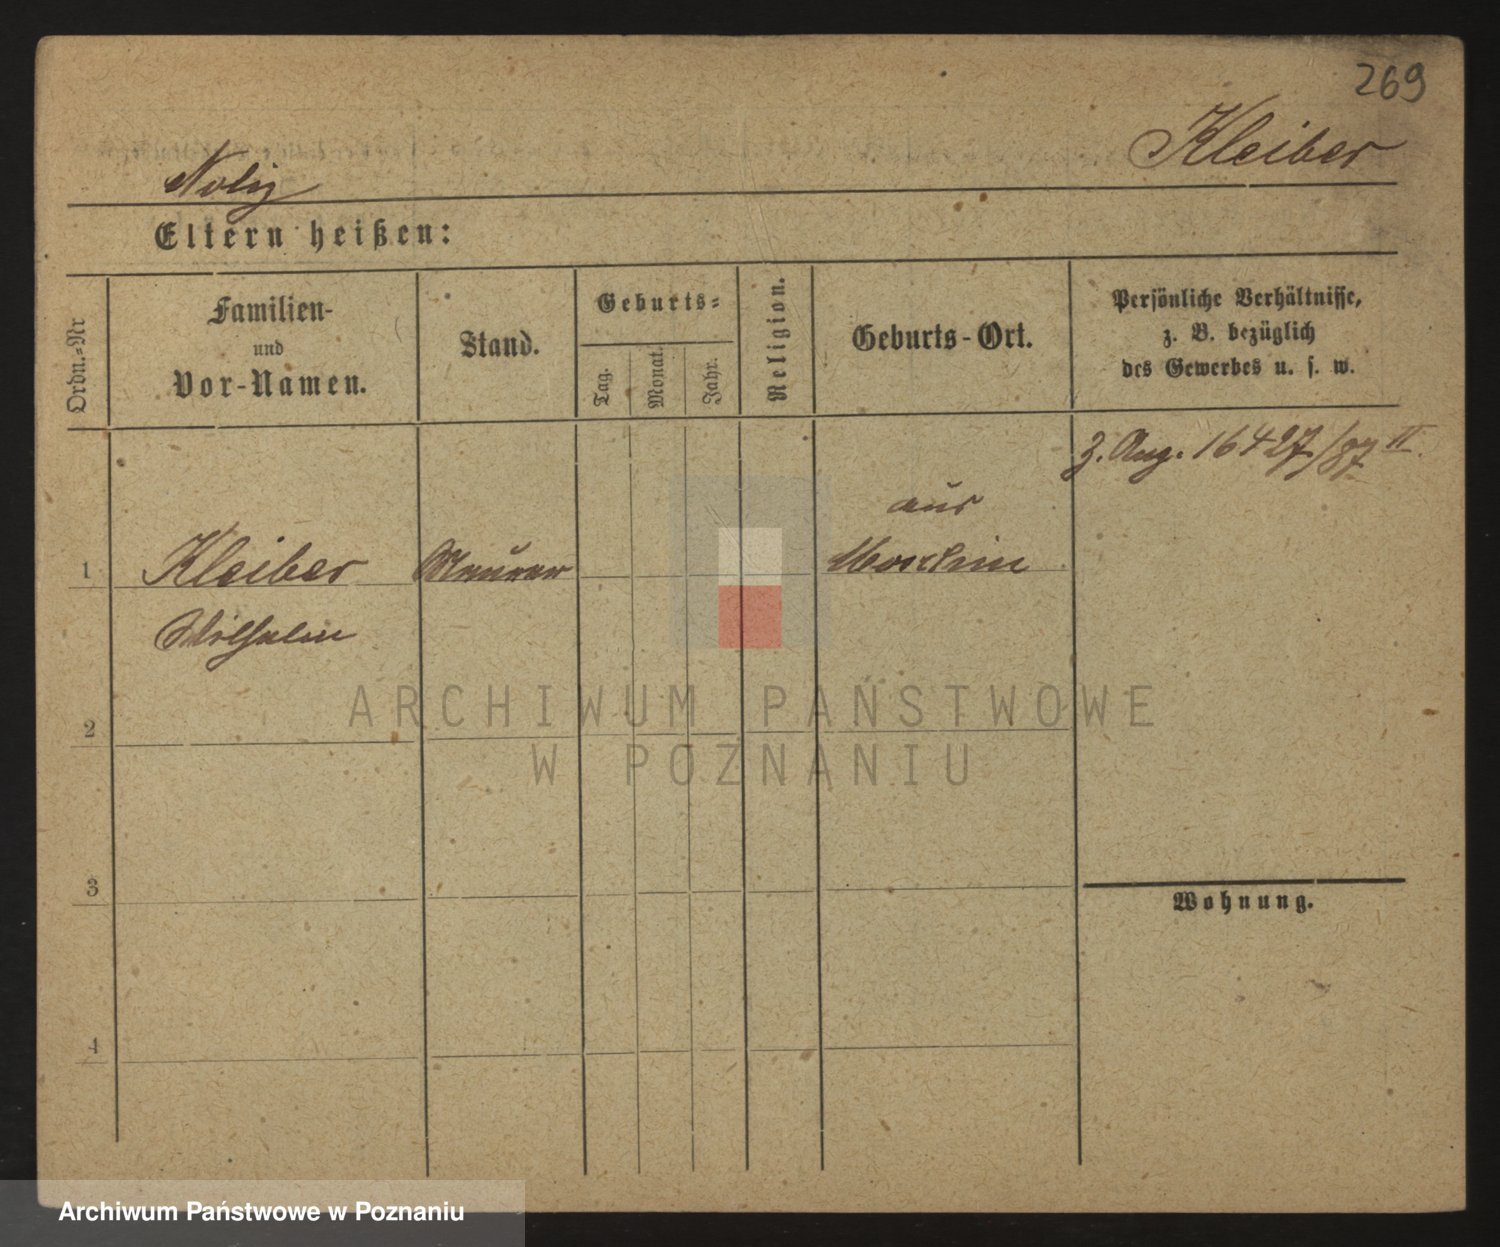 269
Kleiber
Notiz
Eltern heißen:
Ordn.-Nr
Familien-
und
Vor-Namen.
Stand.
Geburts-
Tag.
Monat.
Jahr.
Religion.
Geburts-Ort.
Persönliche Verhältnisse,
z. B. bezüglich
des Gewerbes u. s. w.
z. Ang. 16427/87 II.
1
Kleiber
Wilhelm
Maurer
aus
Moschin
2
3
4
Wohnung.
ARCHIWUM PAŃSTWOWE
W POZNANIU
Archiwum Państwowe w Poznaniu